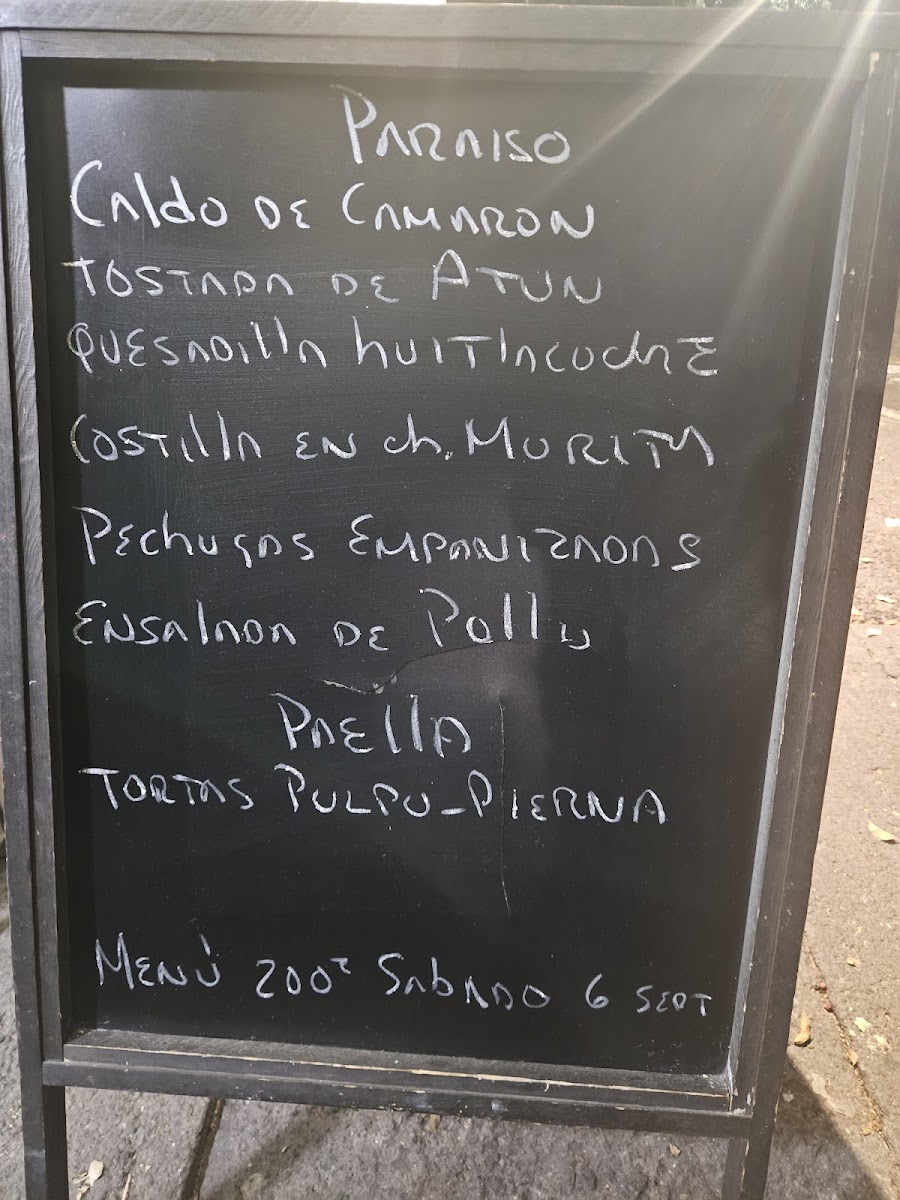 PARAISO
CAldO DE CAMARON
TOSTADA DE ATUN
QUESADIllA hUITlACOChE
COSTIllA EN Ch. MORITA
PEChUgAS EMPANIZADAS
ENSAlADA DE Pollo
PAEllA
TORTAS PULPO-PIERNA
MENÚ 200 SAbADO 6 SEPT